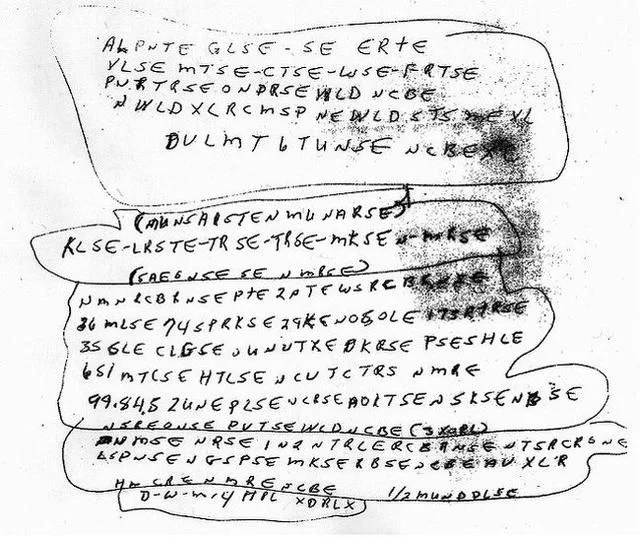 ALPNTE GLSE-SE ERTE
VLSE MTSE-CTSE-WSE-FRTSE
PNRTRSEONDRSEWLD NCBE
NWLDXLRCMSP NEWLDSTSMEXL
DULMT6TUNSE NCBEXC
(MUNSARSTENMUNARSE)
KLSE-LRSTE-TRSE-TRSE-MKSEN-MRSE
(SAEGNSE SE NMRSE)
NMNRCBRNSEPTE2PTEWSRCBRNSE
36MLSE74SPRKSE29KENOSOLE173RTRSE
35GLE CLGSEUNUTXEDKRSE PSESHLE
651MTCSE HTLSENCUTCTRS NMRE
99.84.52UNEPLSENCRSEAOKTSENSKSENBSE
NSREONSE PVTSEWLDNCBE (3XORL)
NMSE NRSE IN2NTRLERCBRNSE NTSRCRSNE
LSPNSENGSPSE MKSERBSENCBE AUXLR
HMCRE NMRE NCBE 1/2MUNDDLSE
D-W-M-14 MPL XDRLX